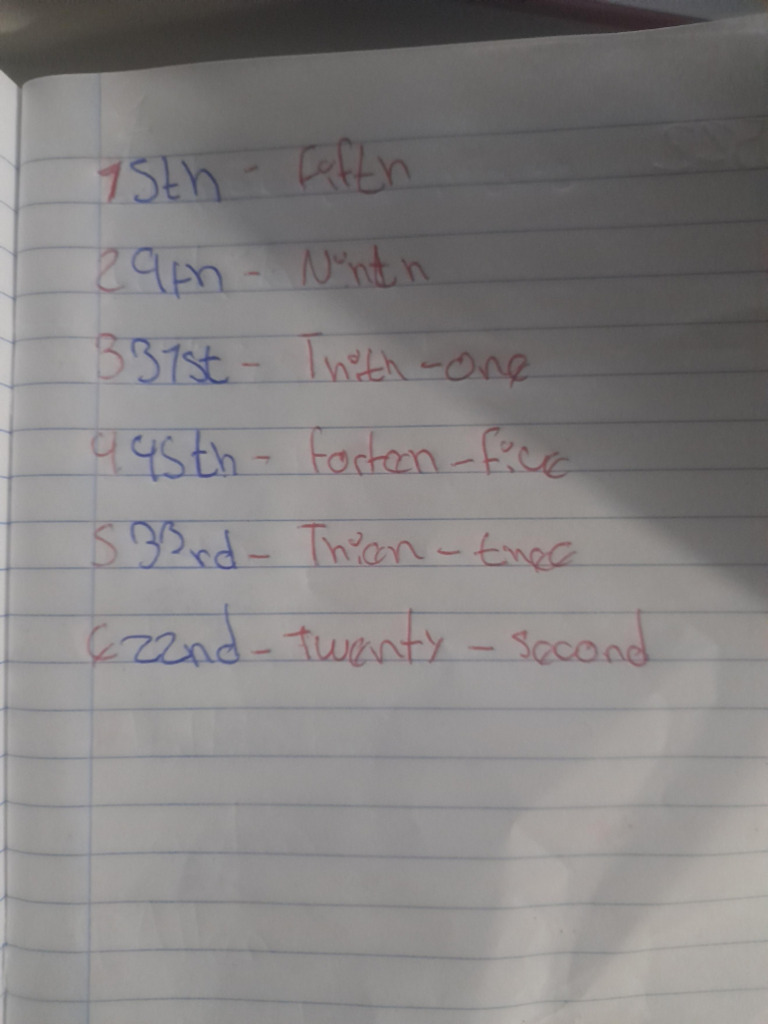 1 5th - Fifth
2 9th - Ninth
3 31st - Thith-one
4 45th - Forteen-five
5 33rd - - thee
6 22nd - Twenty - second